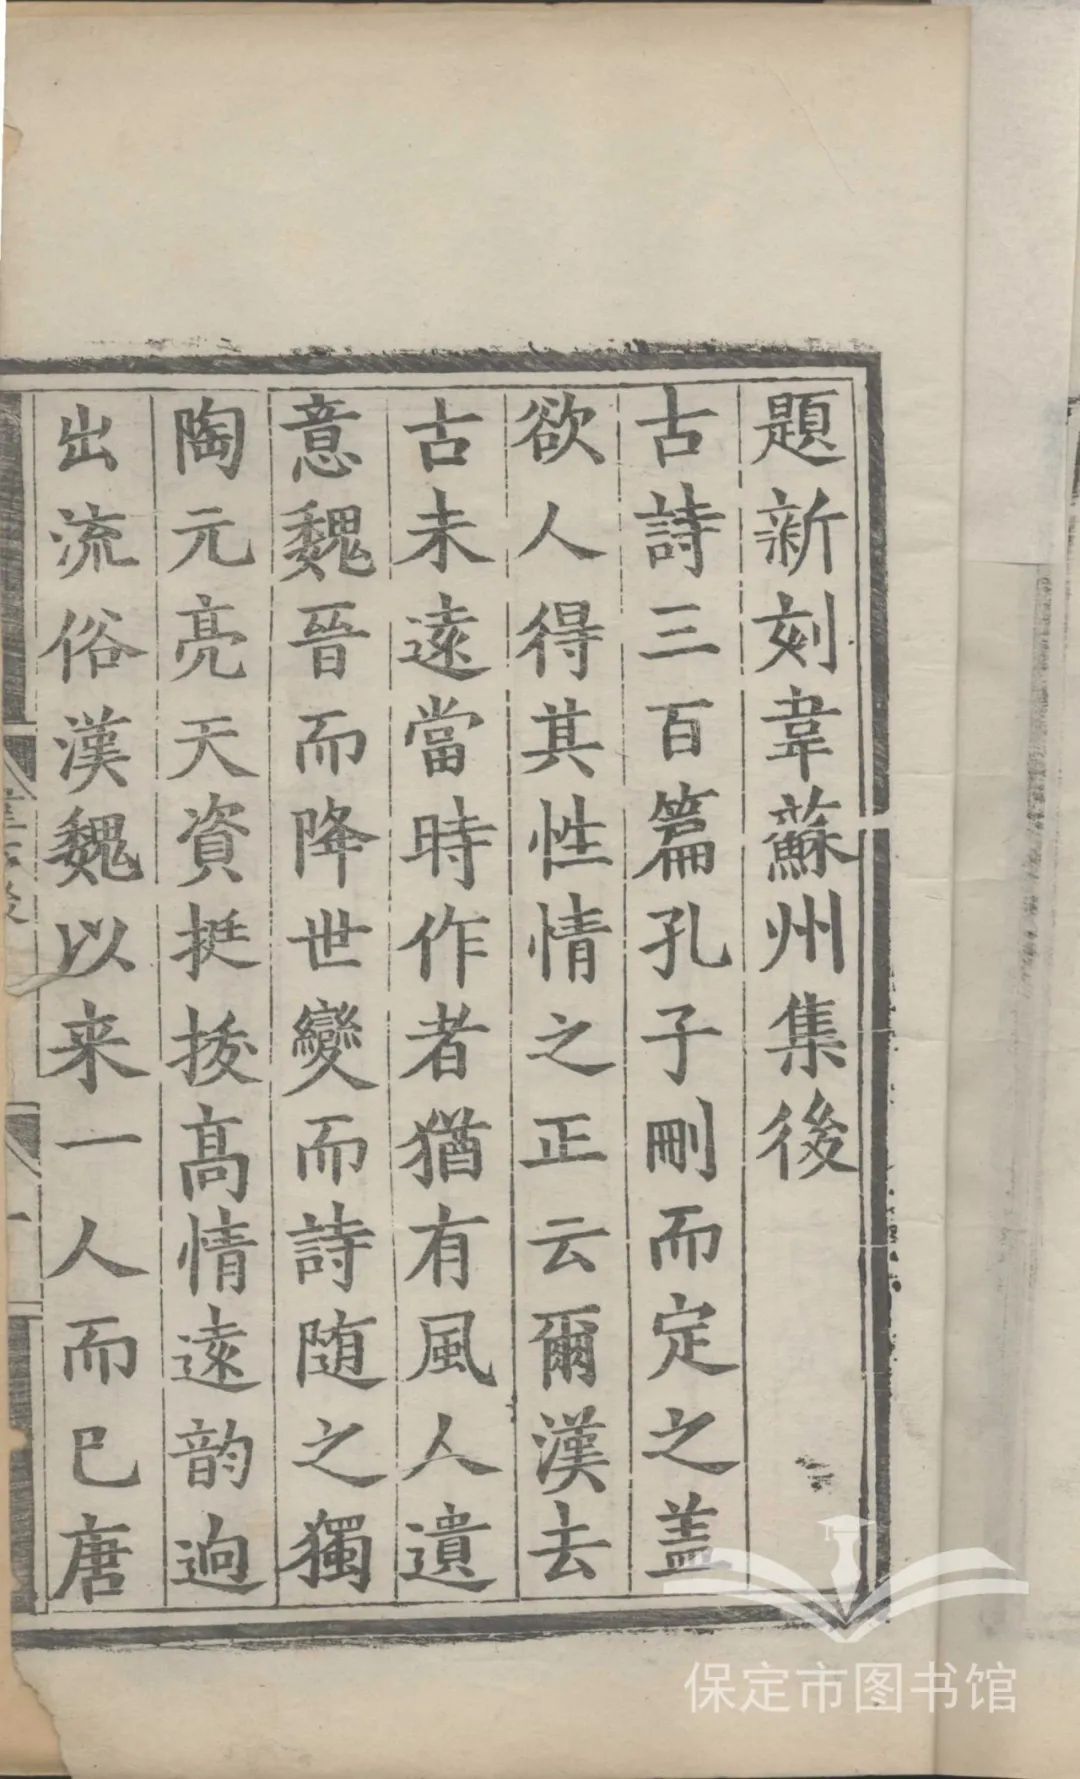 題新刻韋蘇州集後
古詩三百篇孔子刪而定之盖
欲人得其性情之正云爾漢去
古未遠當時作者猶有風人遺
意魏晉而降世變而詩随之獨
陶元亮天資挺拔高情遠韵逈
出流俗漢魏以来一人而已唐
保定市图书馆